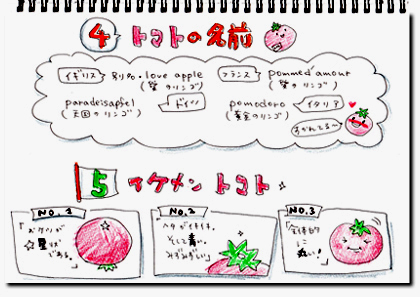 4 トマトの名前
イギリス 別名・love apple フランス pommed'amour
(愛のリンゴ) (愛のリンゴ)
paradeisapfel ドイツ pomodoro イタリア
(天国のリンゴ) (黄金のリンゴ)
5 イケメン トマト
NO.2
NO.3
おケツが
星状
である。
ヘタがイキイキ。
そして青い。
みずみずしい
全体的
に
丸い!